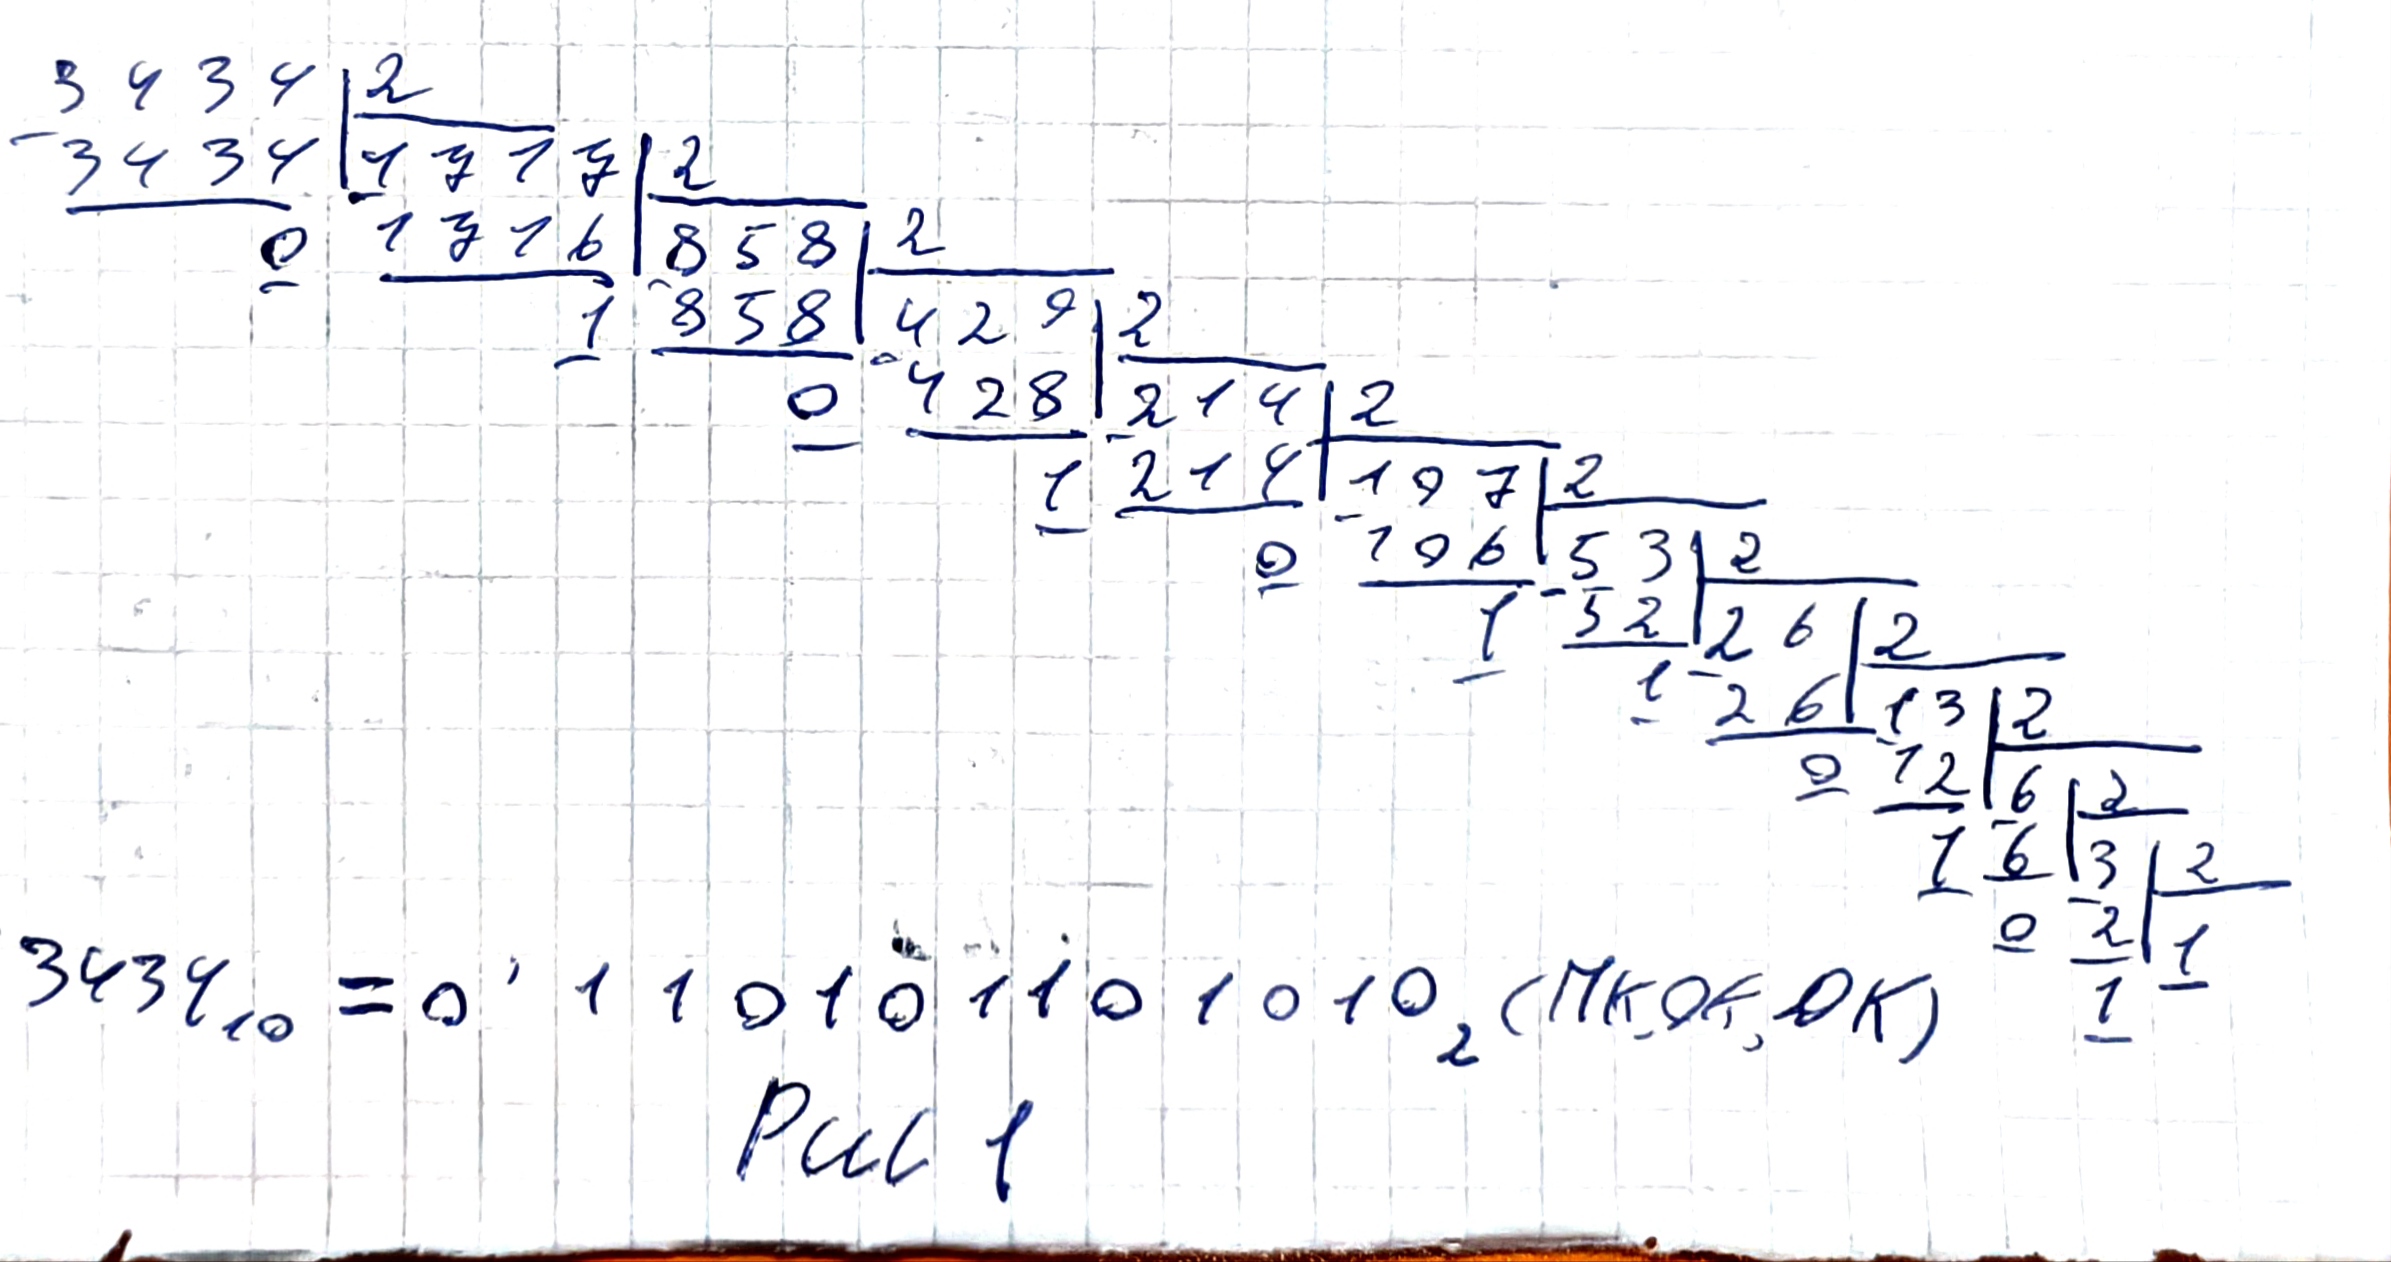 3434 | 2
- 3434 | 1717 | 2
0 - 1716 | 858 | 2
1 - 858 | 429 | 2
0 - 428 | 214 | 2
1 - 214 | 107 | 2
0 - 106 | 53 | 2
1 - 52 | 26 | 2
1 - 26 | 13 | 2
0 - 12 | 6 | 2
1 - 6 | 3 | 2
0 - 2 | 1
1
3434₁₀ = 0' 110101101010₂ (ПК, ОК, ДК)
Рис 1